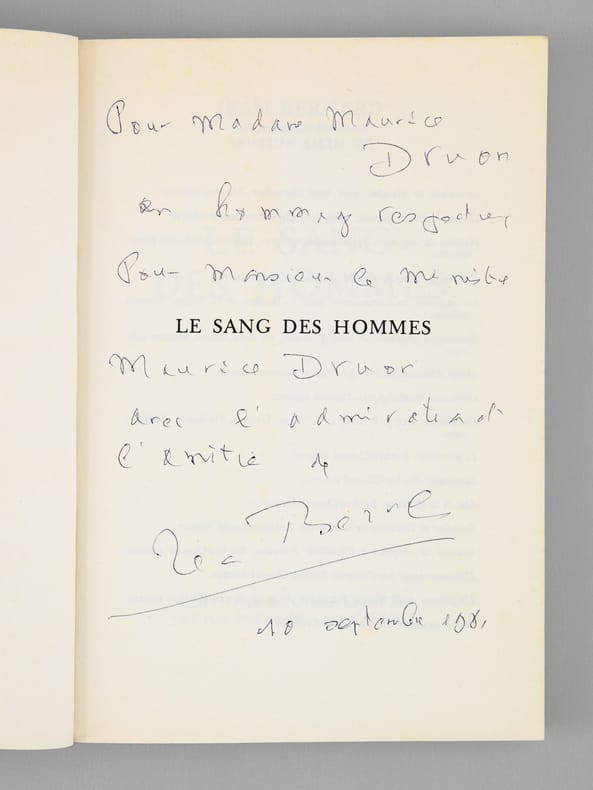 Pour Madame Maurice
Druon
en hommage respectueux
Pour Monsieur le Ministre
LE SANG DES HOMMES
Maurice Druon
avec l'admiration et
l'amitié de
Jean Bernard
10 septembre 1981